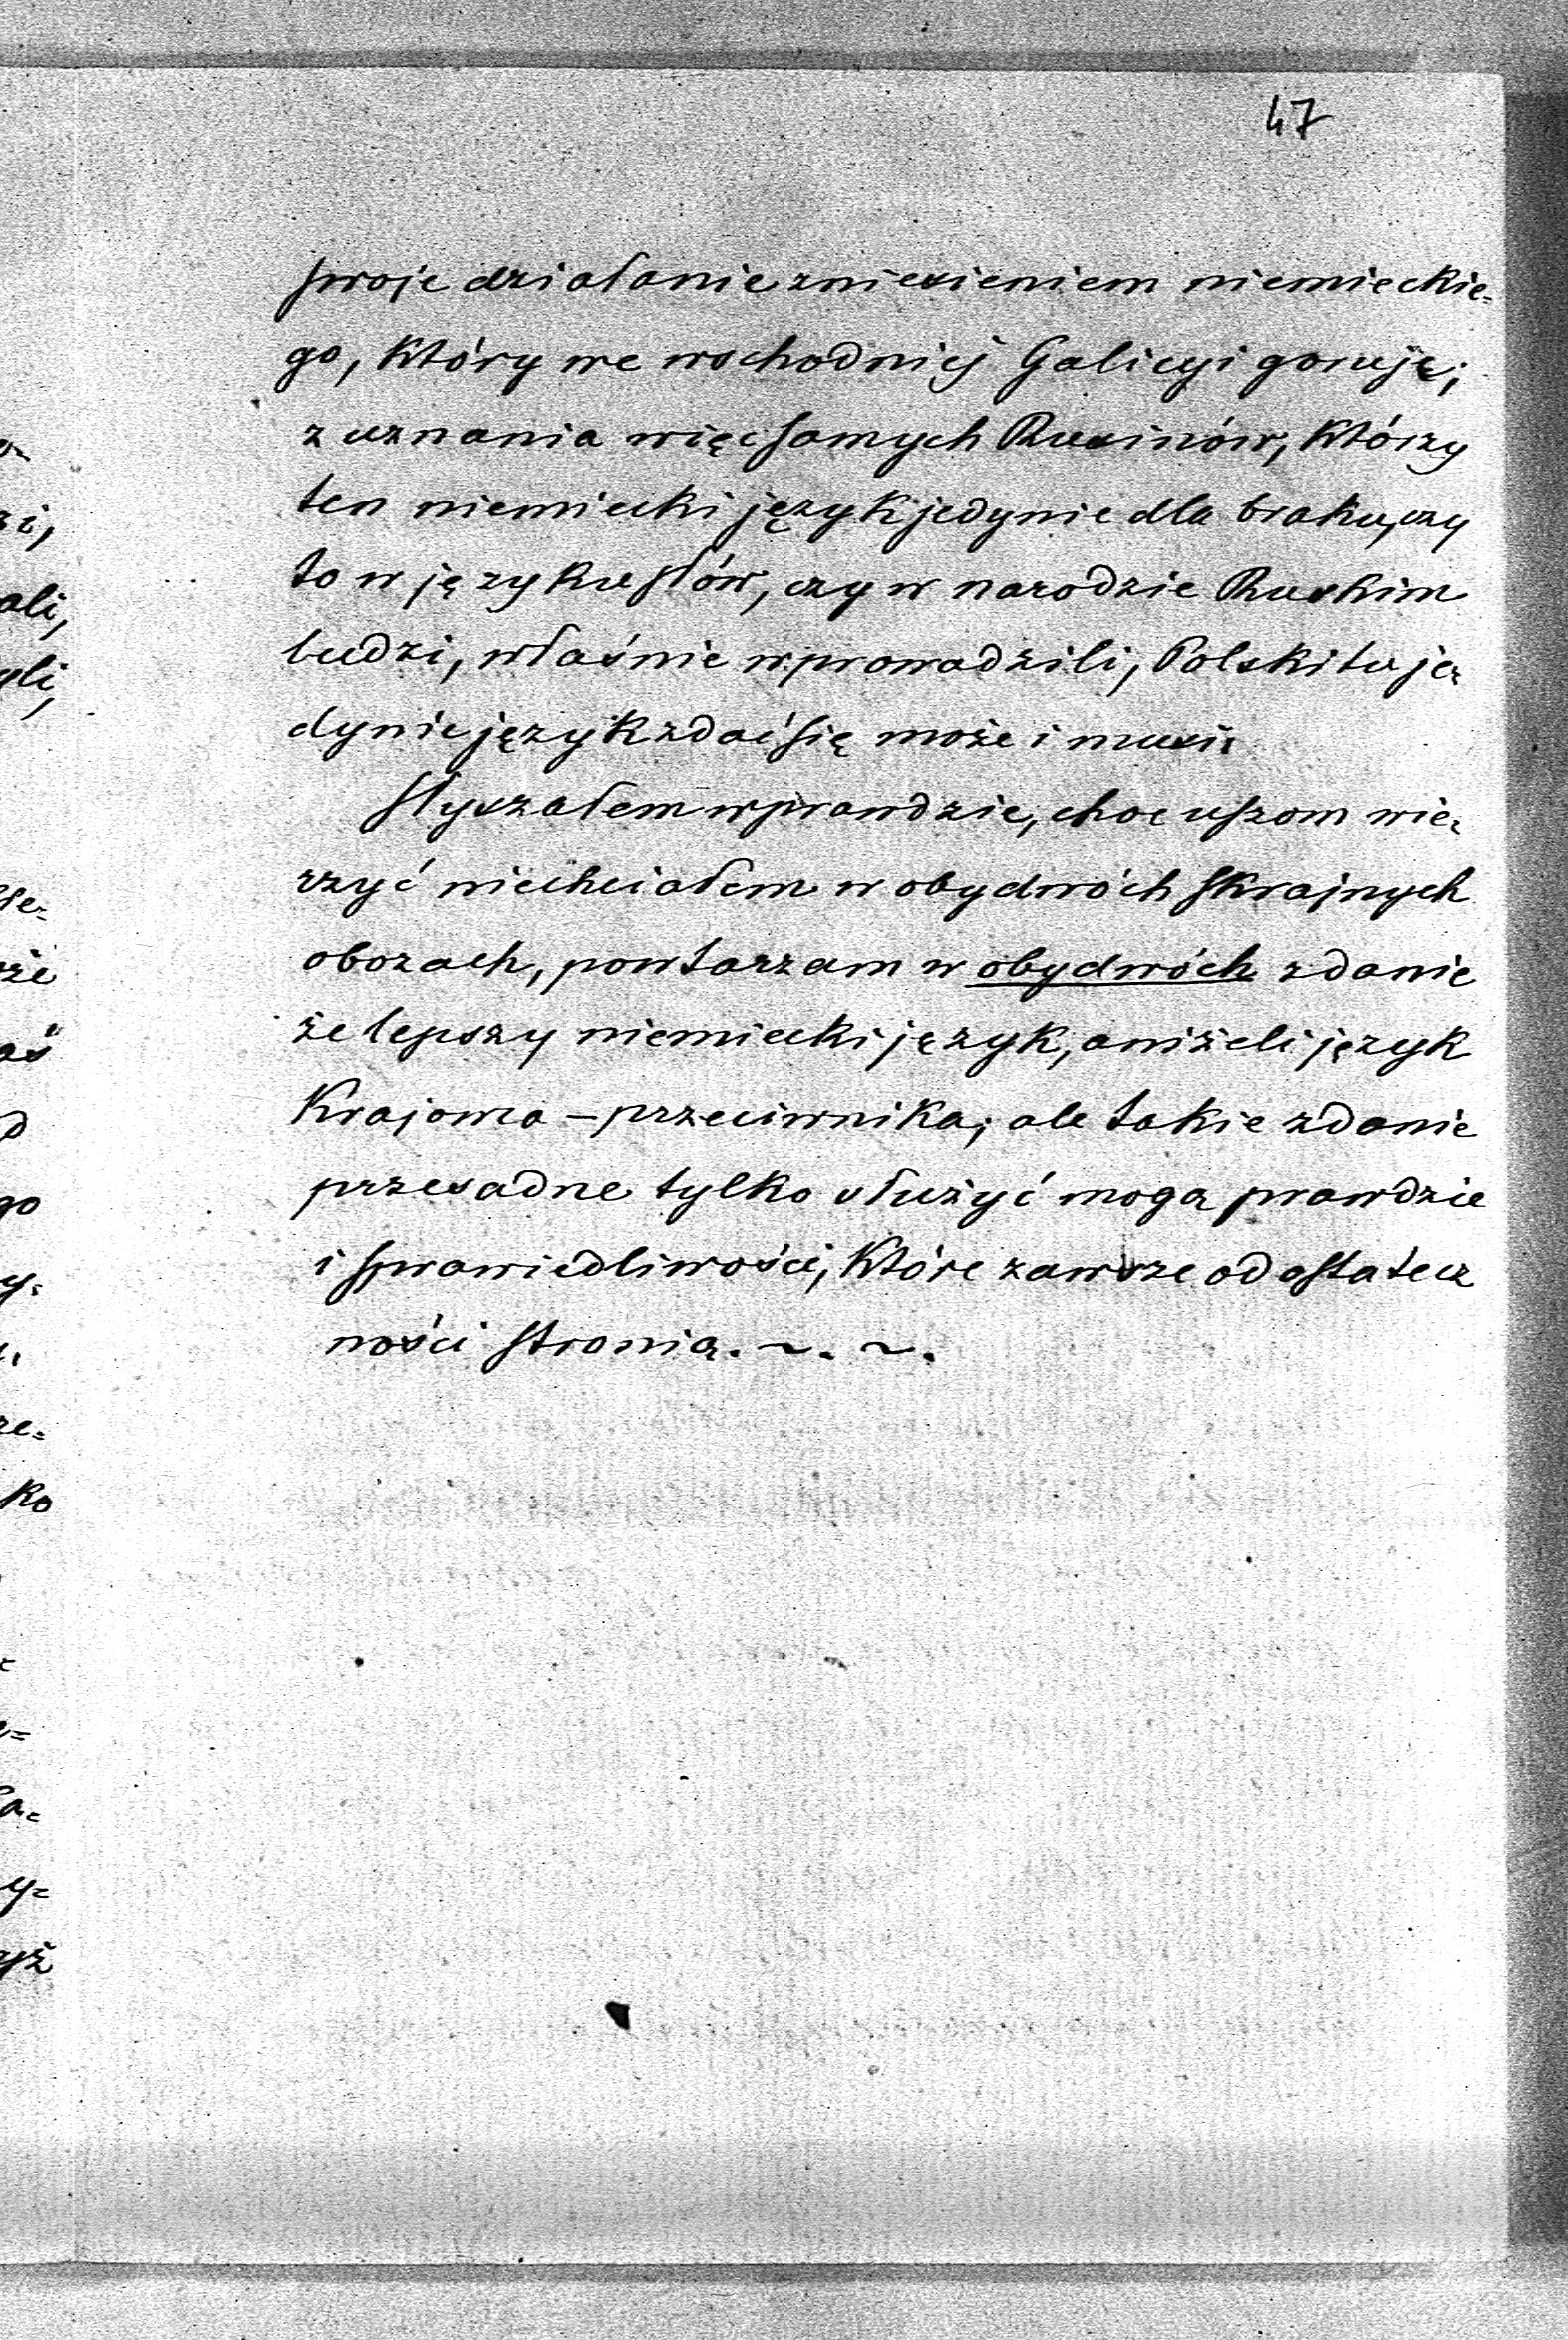 47
swoje działanie zniesieniem niemieckie=
go, który we wschodniéj Galicyi goruje;
z uznania więc samych Rusinów, którzy
ten niemiecki język jedynie dla braku, czy
to w języku słów, czy w narodzie Ruskim
ludzi, właśnie wprowadzili, Polski tu je=
dynie język zdać się może i musi.
Słyszałem wprawdzie, choc uszom wie=
rzyć niechciałem w obydwóch skrajnych
obozach, powtarzam w obydwóch zdanie
że lepszy niemiecki język, aniżeli język
Krajowca – przeciwnika; ale takie zdanie
przesadne tylko służyć mogą prawdzie
i sprawiedliwości, które zawsze od ostatecz
ności stronią. ~. ~.